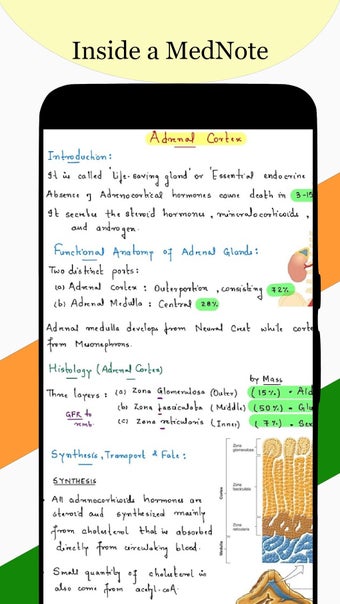 Inside a MedNote
Adrenal Cortex
Introduction:
It is called 'life-saving gland' or 'Essential endocrine
Absence of Adrenocortical hormones cause death in 3-15
It secretes the steroid hormones, mineralocorticoids,
and androgen.
Functional Anatomy of Adrenal Glands:
Two distinct parts:
(a) Adrenal Cortex: Outer portion, consisting 72%
(b) Adrenal Medulla: Central 28%
Adrenal medulla develops from Neural Crest while corte
from Mesonephros.
Histology (Adrenal Cortex)
by Mass
Three layers: (a) Zona Glomerulosa (Outer) (15%) - Ald
GFR to remb. (b) Zona fasciculata (Middle) (50%) - Glu
(c) Zona reticularis (Inner) (7%) - Sex
Synthesis, Transport & Fate:
SYNTHESIS
All adrenocorticoids hormones are
steroid and synthesized mainly
from cholesterol that is absorbed
directly from circulating blood.
Small quantity of cholesterol is
also come from acetyl.coA.
Zona
glomerulosa
Zona
fasciculata
Cortex
Zona
reticularis
Medulla